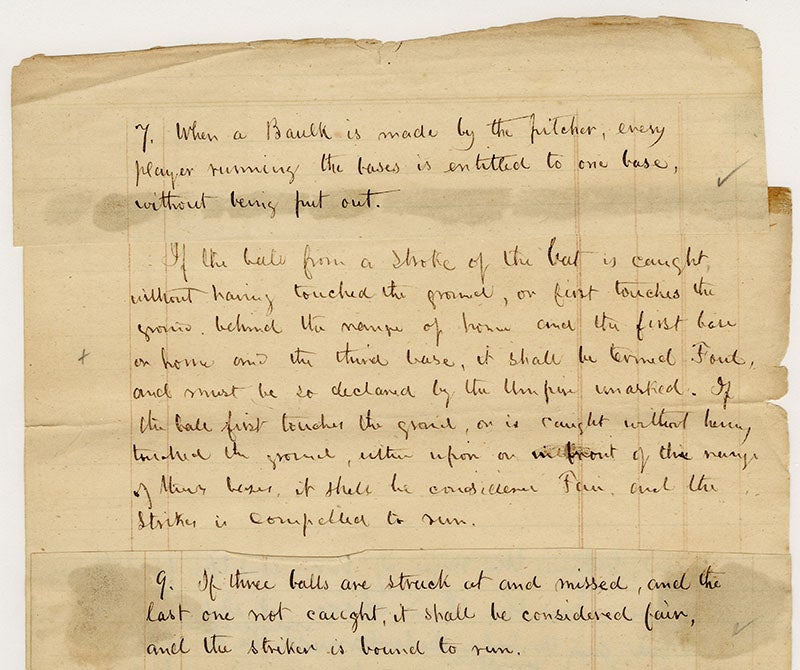 7. When a Baulk is made by the pitcher, every
player running the bases is entitled to one base,
without being put out.
If the ball from a stroke of the bat is caught
without having touched the ground, or first touches the
ground, behind the range of home and the first base
or home and the third base, it shall be termed Foul,
and must be so declared by the Umpire unasked. If
the ball first touches the ground, or is caught without having
touched the ground, either upon or in front of the range
of those bases, it shall be considered Fair, and the
Striker is compelled to run.
9. If three balls are struck at and missed, and the
last one not caught, it shall be considered fair,
and the striker is bound to run.